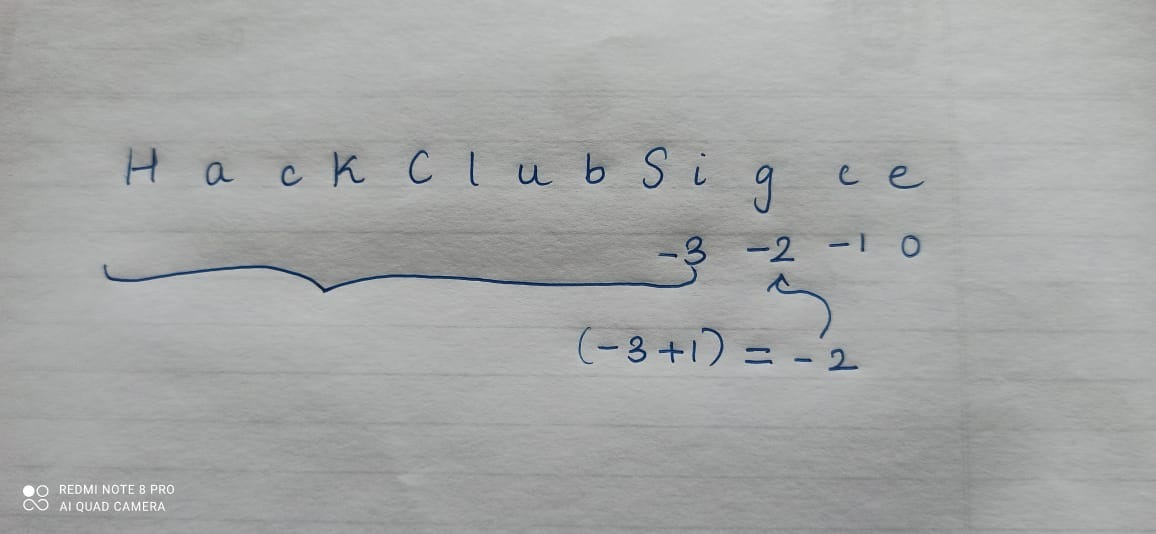 H a c k C l u b S i g c e
-3 -2 -1 0
(-3+1) = -2
REDMI NOTE 8 PRO
AI QUAD CAMERA